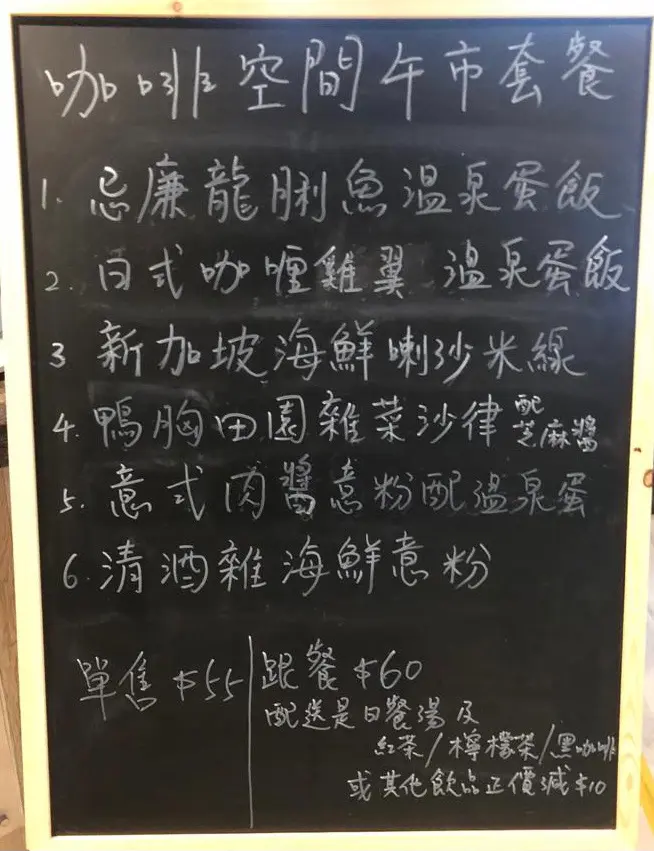 咖啡空間午市套餐
1. 忌廉龍脷魚溫泉蛋飯
2. 日式咖喱雞翼 溫泉蛋飯
3 新加坡海鮮喇沙米線
4. 鴨胸田園雜菜沙律 配芝麻醬
5. 意式肉醬意粉配溫泉蛋
6. 清酒雜海鮮意粉
單售 $55
跟餐 $60
配送是日餐湯及
紅茶/檸檬茶/黑咖啡
或其他飲品正價減$10